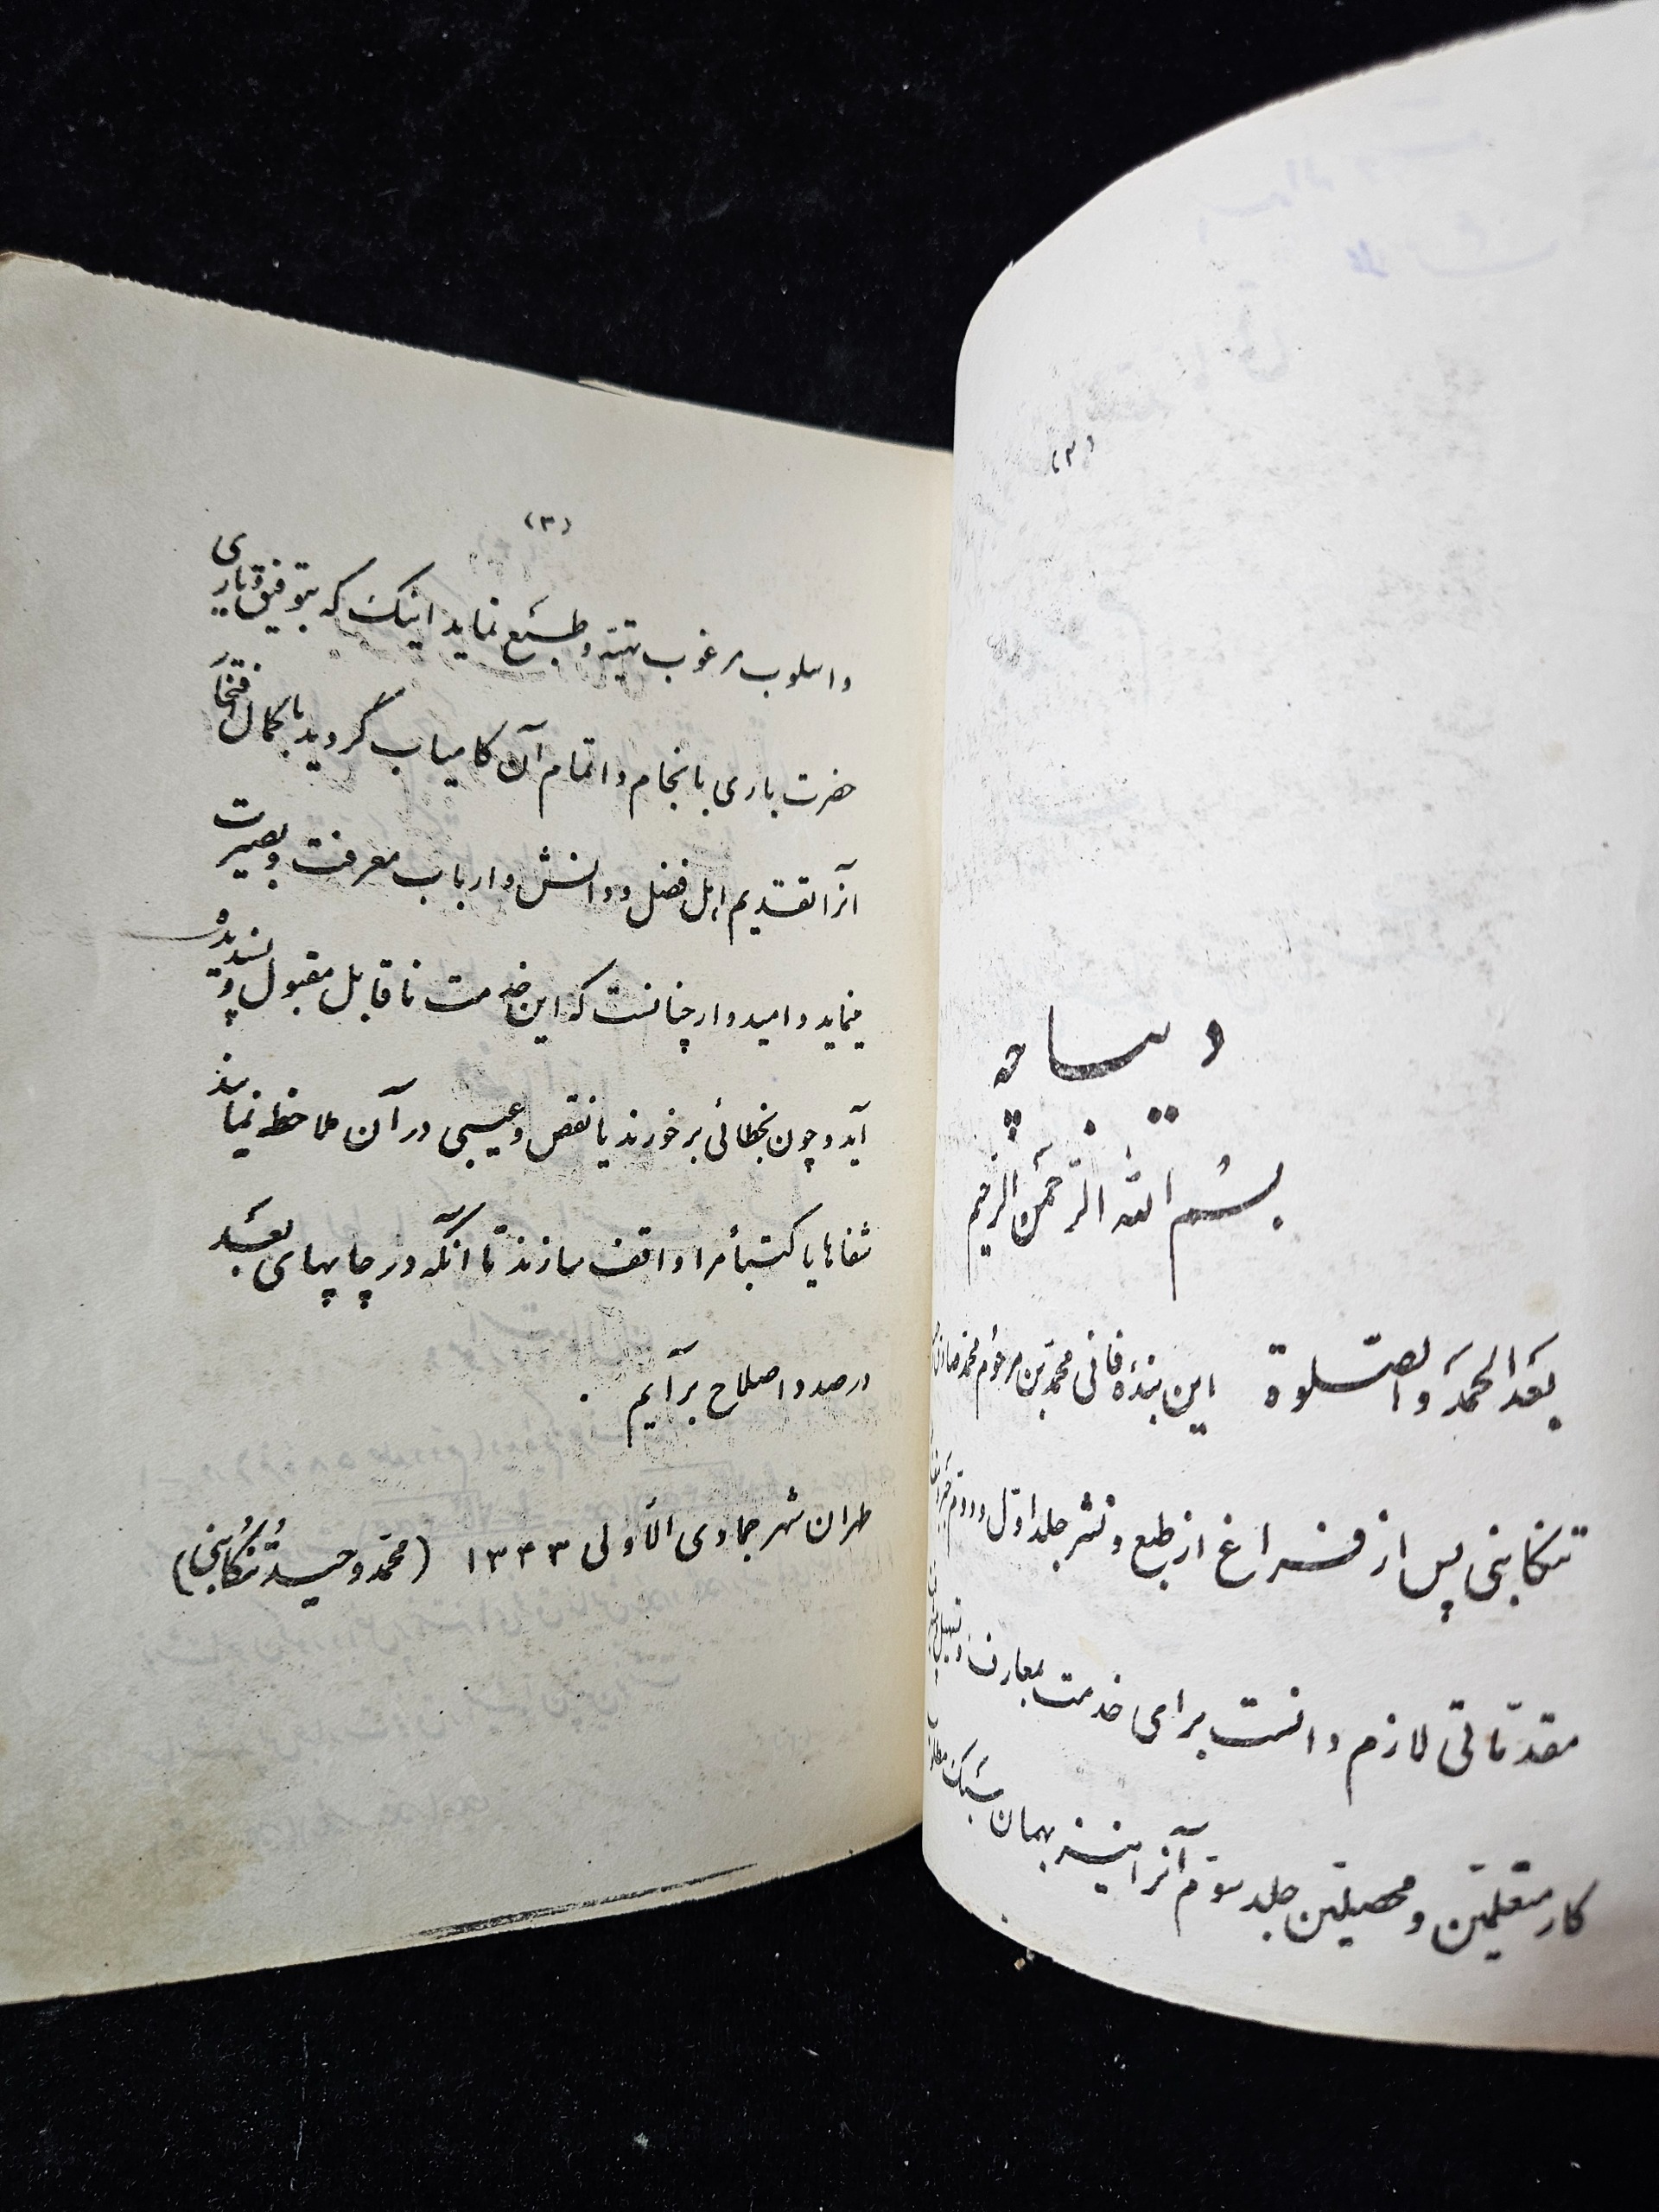 (۲)
دیباچه
بسم الله الرحمن الرحیم
بعد الحمد والصلوة این بنده فانی محمد بن مرحوم محمد صادق
تنکابنی پس از فراغ از طبع و نشر جلد اول و دوم
مقدماتی لازم دانست برای خدمت بمعارف و تسهیل
کار متعلمین و محصلین جلد سوم آنرا نیز بهمان سبک مطلوب
(۳)
واسلوب مرغوب تهیه و طبع نماید اینک که بتوفیق و یاری
حضرت باری بانجام واتمام آن کامیاب گردید با کمال افتخار
آنرا تقدیم اهل فضل و دانش و ارباب معرفت و بصیرت
مینماید و امیدوار چنانست که این خدمت ناقابل مقبول و پسندیده
آید و چون بخطائی برخورند یا نقص و عیبی در آن ملاحظه نمایند
شفاها یا کتبا مرا واقف سازند تا آنکه در چاپهای بعد
درصدد اصلاح برآیم .
طهران شهر جمادی الاولی ۱۳۴۳ (محمد وحید تنکابنی)